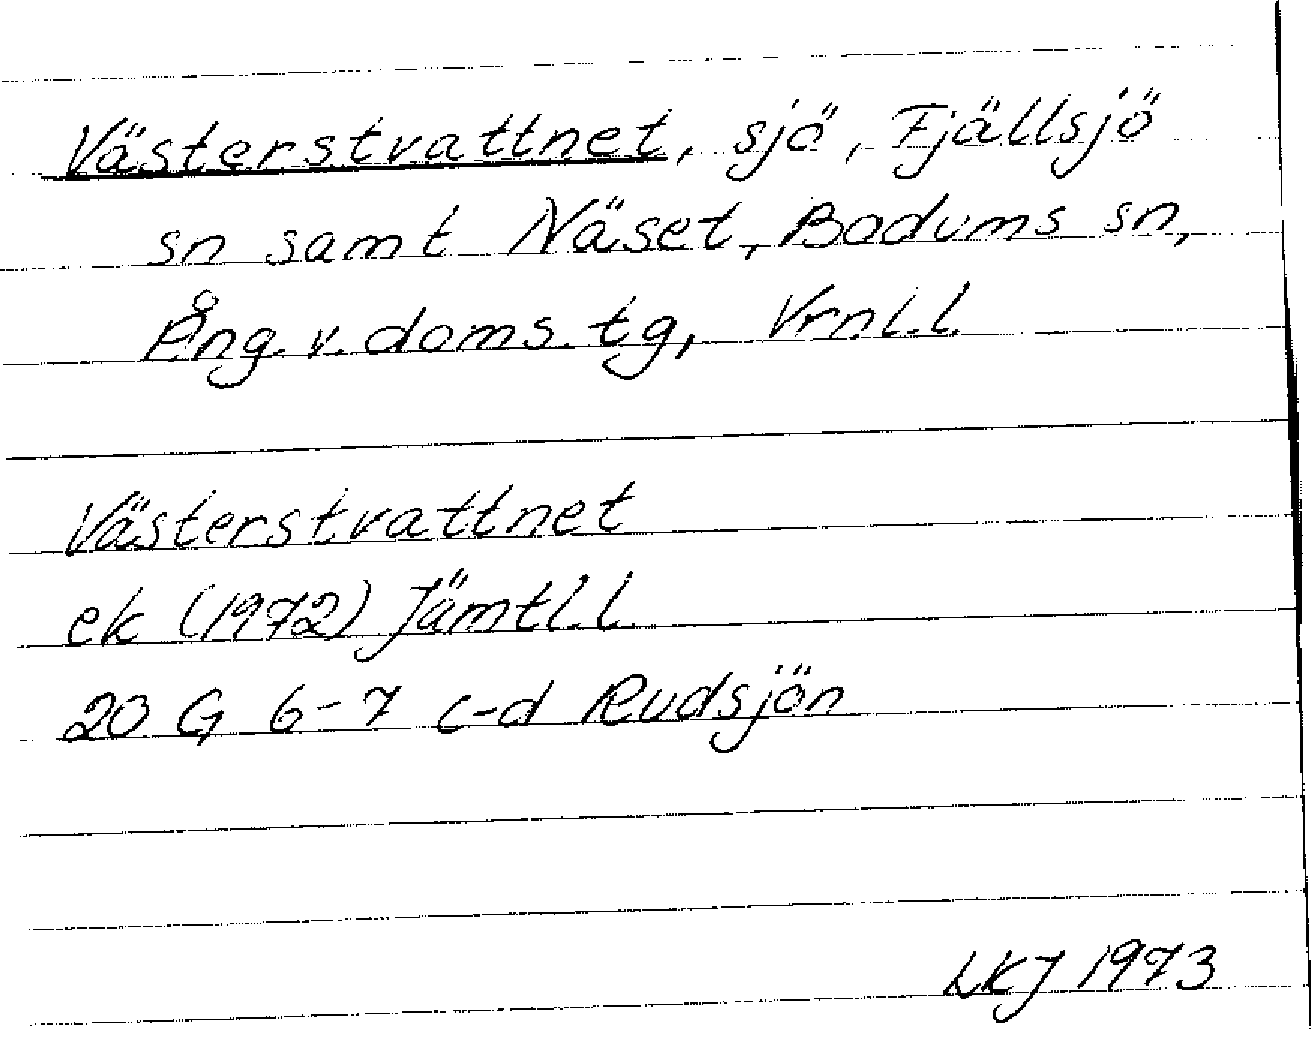 Västerstvattnet, sjö, Fjällsjö
sn samt Näset, Bodums sn,
Ång. v. doms. tg, Vrnl. l.
Västerstvattnet
ek (1972) Jämtl. l.
20 G 6-7 c-d Rudsjön
LKJ 1973